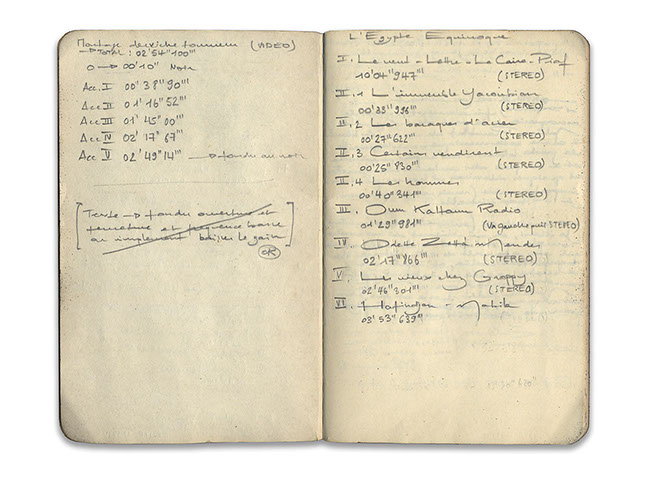 Montage derviche tourneur (VIDEO)
→ TOTAL : 02'54"100'''
0 → 00'10" Noir
Acc. I 00'38"90'''
Acc II 01'16"52'''
Acc III 01'45"00'''
Acc IV 02'17"67'''
Acc V 02'49"14''' → fondu au noir
[Texte → fondu ouverture et
fermeture et fréquence basse
ou simplement baisser le gain]
OK
L'Egypte Equivoque
I. Le neuf - Lettre - Le Caire - Prof
10'04"947''' (STEREO)
II.1 L'immeuble Yacoubian
00'33"996''' (STEREO)
II.2 Les baraques d'acier
00'27"622''' (STEREO)
II.3 Certains vendirent
00'25"830''' (STEREO)
II.4 Les hommes
00'40"341''' (STEREO)
III. Oum Kalthoum Radio
01'29"981''' (Via gauche puis STEREO)
IV. Odette Mendes
02'17"866''' (STEREO)
V. Le vieux chez Groppy
02'46"301''' (STEREO)
VI.
03'53"639'''